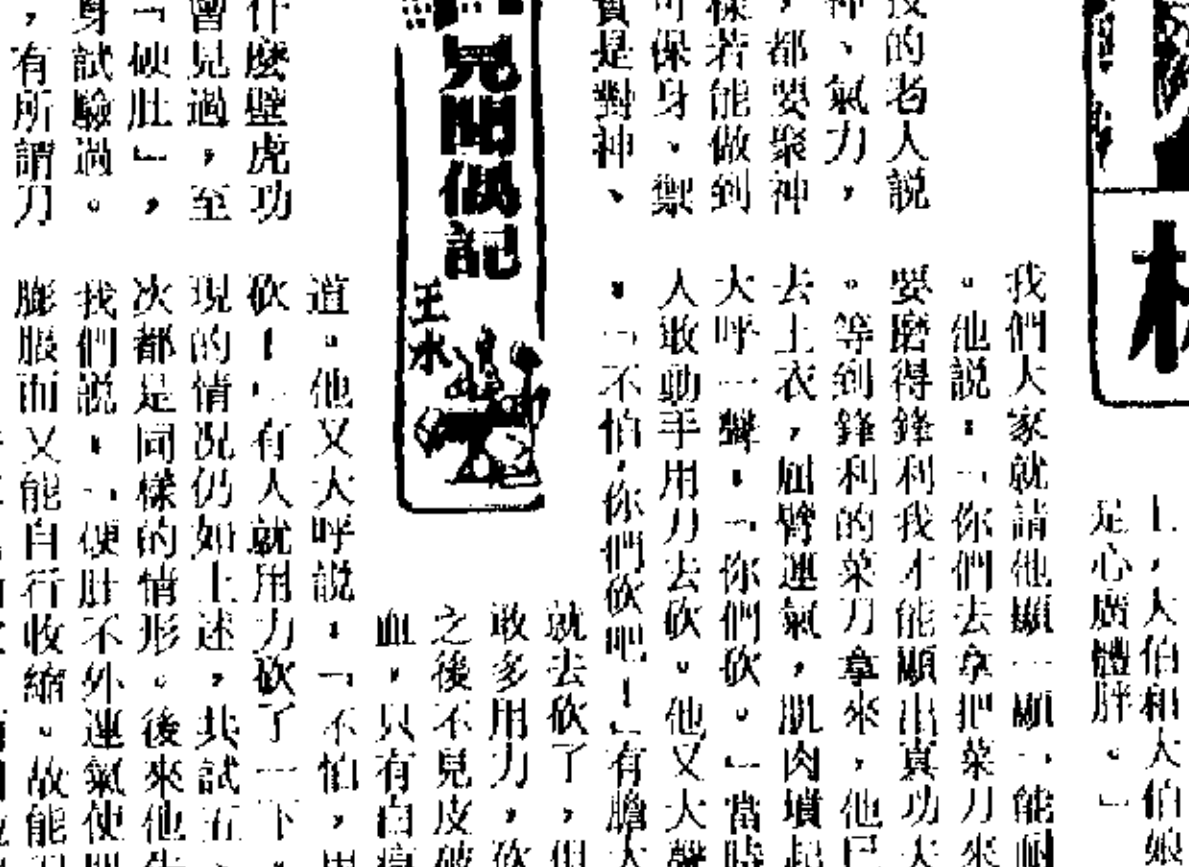 上，大伯和大伯娘
是心廣體胖。」
我們大家就請他顯一顯，能耐
。他說：「你們去拿把菜刀來
要磨得鋒利我才能顯出真功夫
。等到鋒利的菜刀拿來，他已
去上衣，屈臂運氣，肌肉墳起
大呼一聲：「你們砍。」當時
人敢動手用刀去砍。他又大聲
：「不怕，你們砍吧！」有膽大
就去砍了，但
敢多用力，砍
之後不見皮破
血，只有白痕
的老人說
神、氣力，
，都要聚神
樣若能做到
可保身、禦
實是對神、
見聞偶記
王水
什麼壁虎功
曾見過，至
「硬肚」，
身試驗過。
，有所謂刀
道。他又大呼說：「不怕，用
砍！」有人就用力砍了一下。
現的情況仍如上述，共試五、
次都是同樣的情形。後來他告
我們說：「硬肚不外運氣使肌
膨脹而又能自行收縮。故能刀